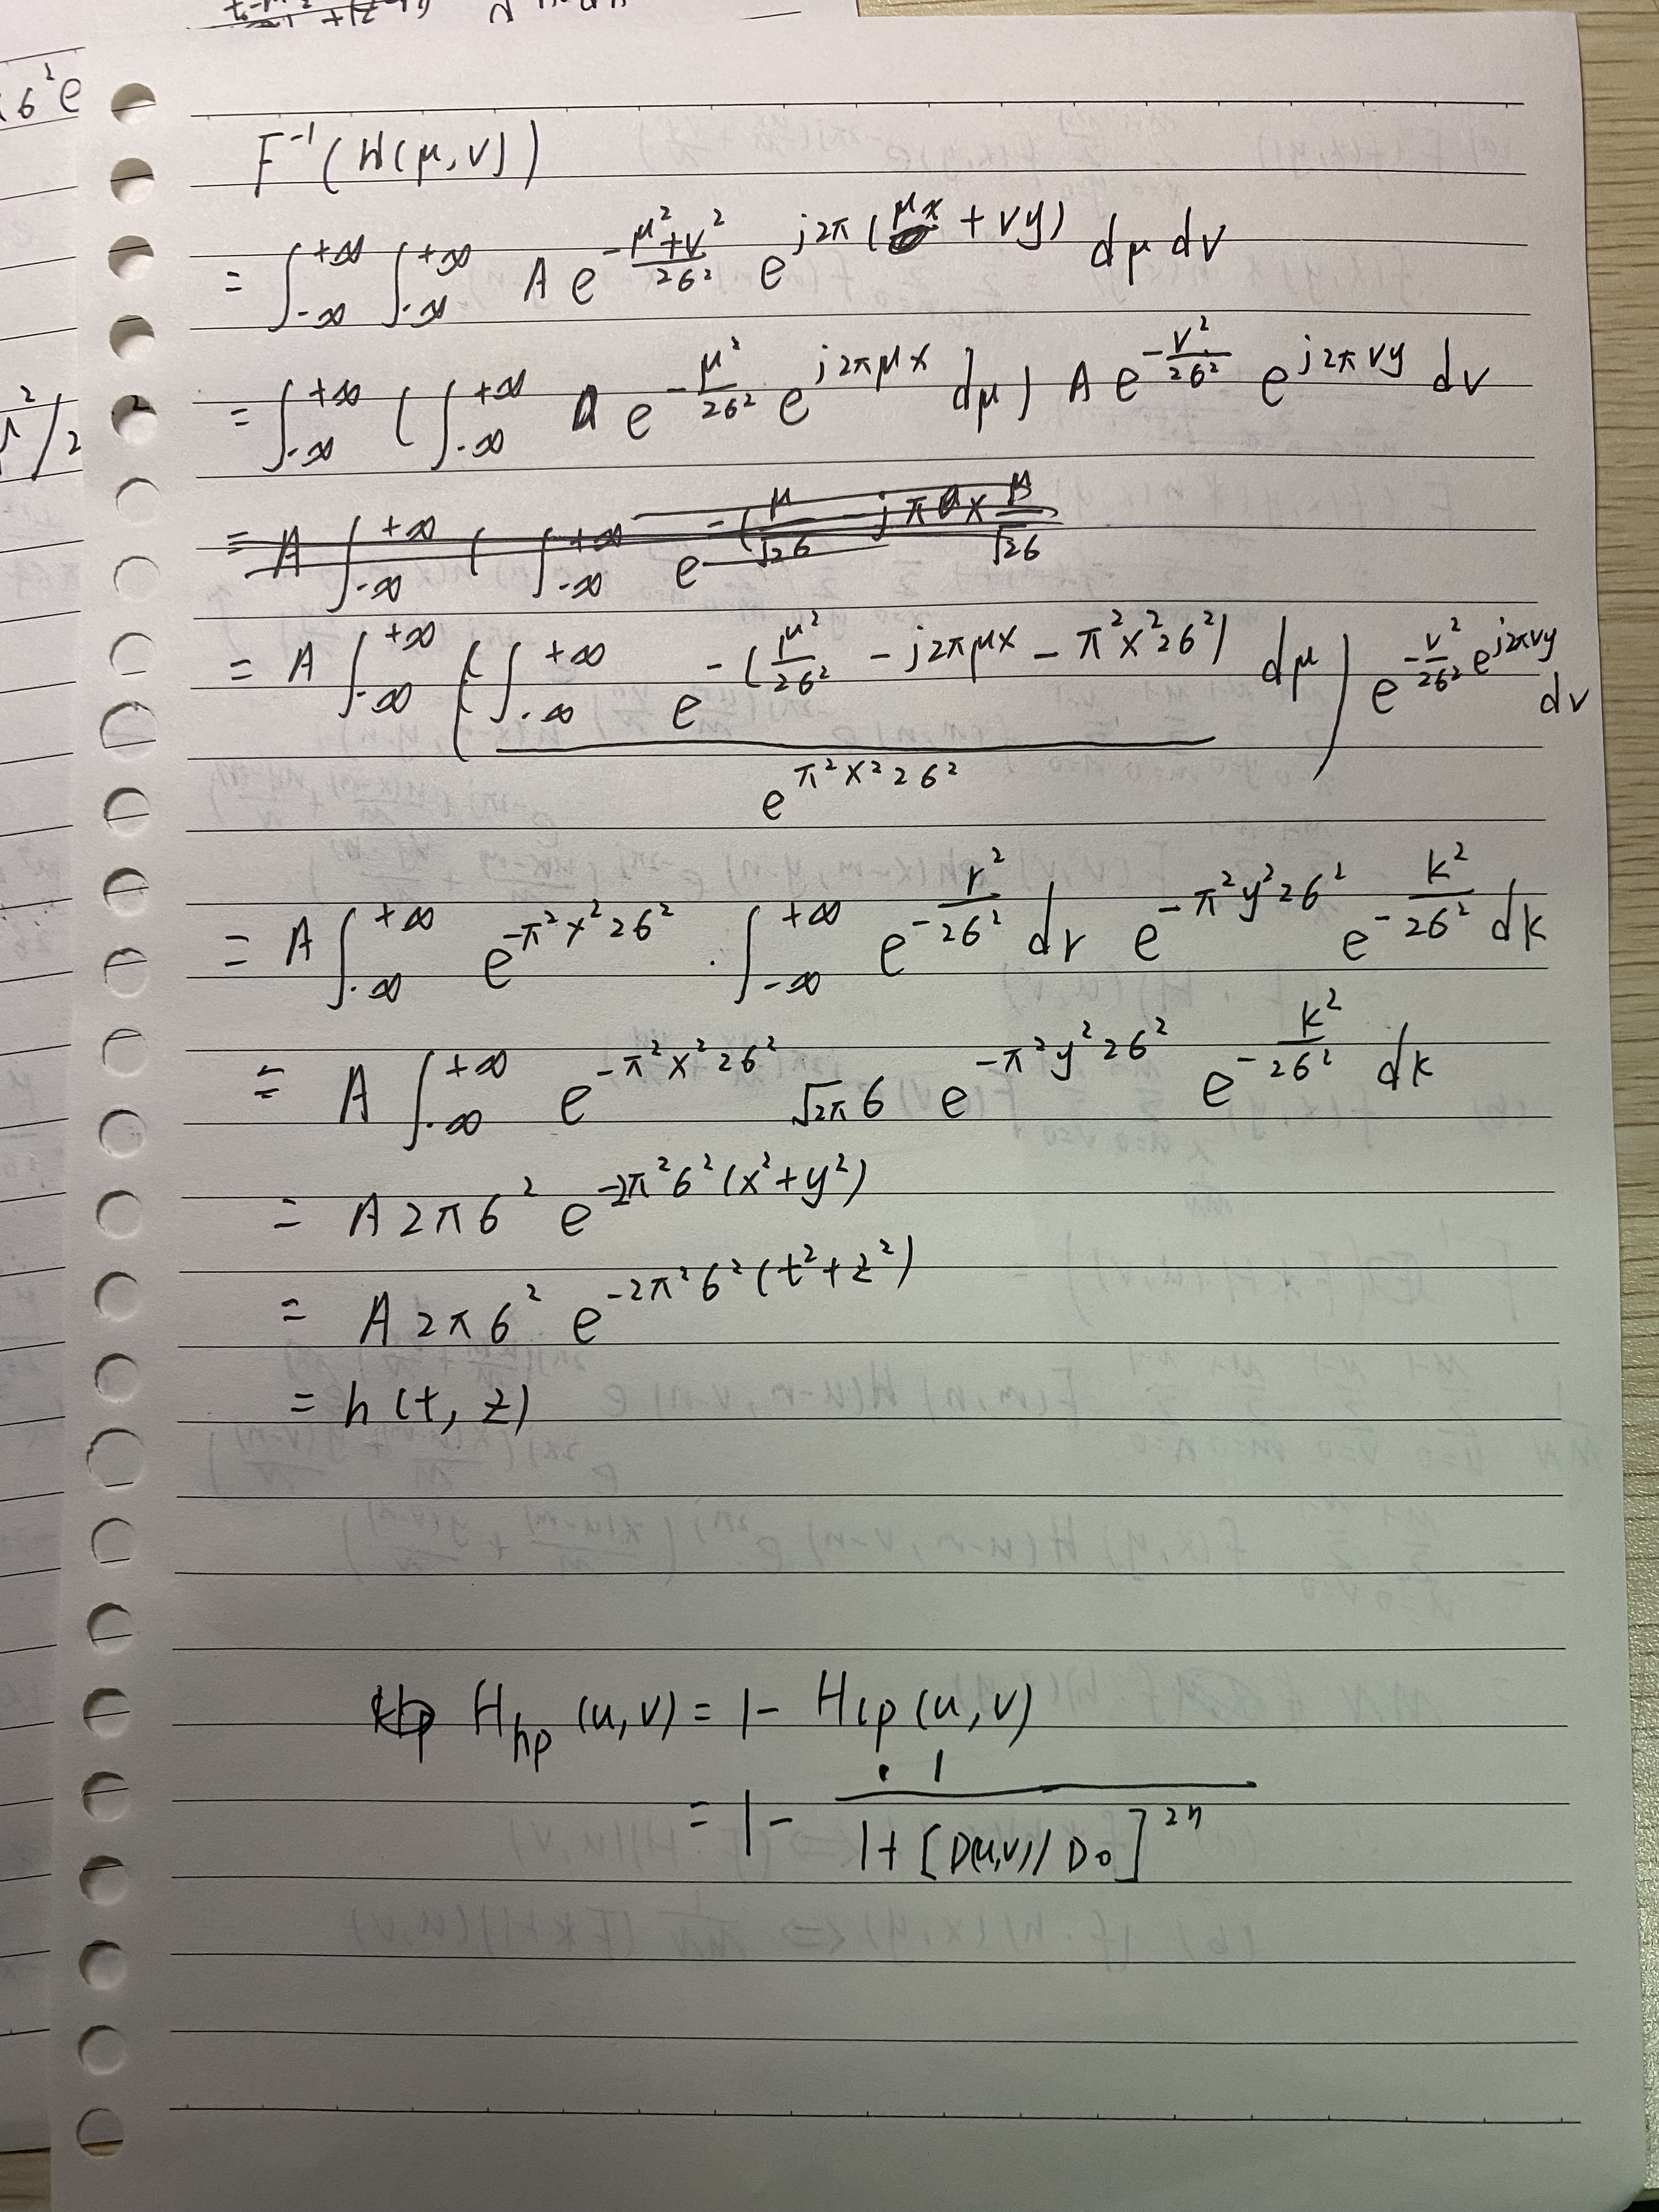 F⁻¹(H(μ,v))
= ∫_{-∞}^{+∞} ∫_{-∞}^{+∞} A e^{-\frac{μ²+v²}{2σ²}} e^{j2π(μx + vy)} dμ dv
= ∫_{-∞}^{+∞} ( ∫_{-∞}^{+∞} e^{-\frac{μ²}{2σ²}} e^{j2πμx} dμ ) A e^{-\frac{v²}{2σ²}} e^{j2πvy} dv
= A ∫_{-∞}^{+∞} ( \frac{∫_{-∞}^{+∞} e^{-(\frac{μ²}{2σ²} - j2πμx - π²x²2σ²)} dμ}{e^{π²x²2σ²}} ) e^{-\frac{v²}{2σ²}} e^{j2πvy} dv
= A ∫_{-∞}^{+∞} e^{-π²x²2σ²} · ∫_{-∞}^{+∞} e^{-\frac{r²}{2σ²}} dr e^{-π²y²2σ²} e^{-\frac{k²}{2σ²}} dk
= A ∫_{-∞}^{+∞} e^{-π²x²2σ²} √2π σ e^{-π²y²2σ²} e^{-\frac{k²}{2σ²}} dk
= A 2πσ² e^{-2π²σ²(x²+y²)}
= A 2πσ² e^{-2π²σ²(t²+z²)}
= h(t, z)
H_{hp}(u,v) = 1 - H_{lp}(u,v)
= 1 - \frac{1}{1+[D(u,v)/D_0]^{2n}}